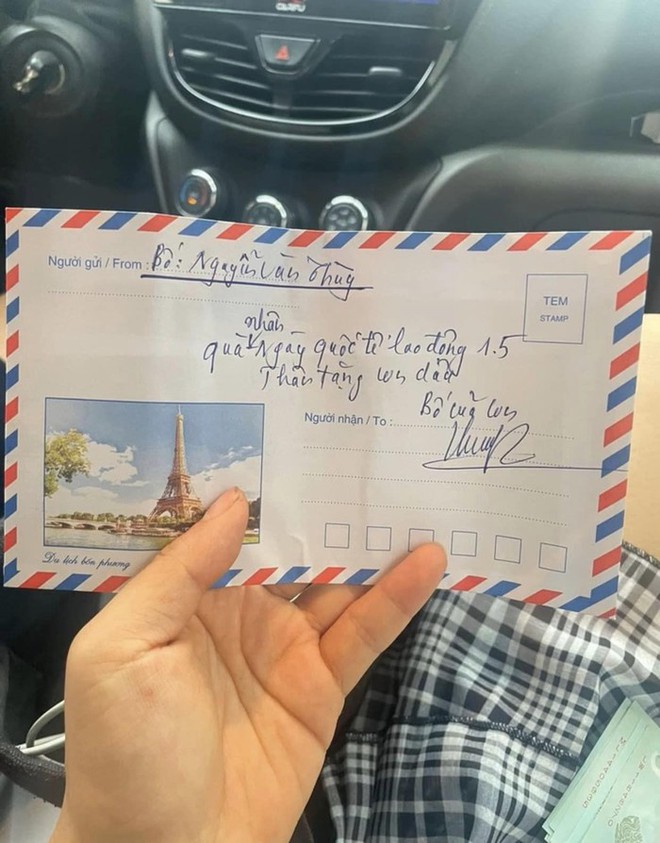 Người gửi / From : Bố: Nguyễn Văn Thùy
TEM
STAMP
nhân
quà Ngày Quốc tế lao động 1.5
Thân tặng con dâu
Bố của con
Người nhận / To :
Du lịch bốn phương